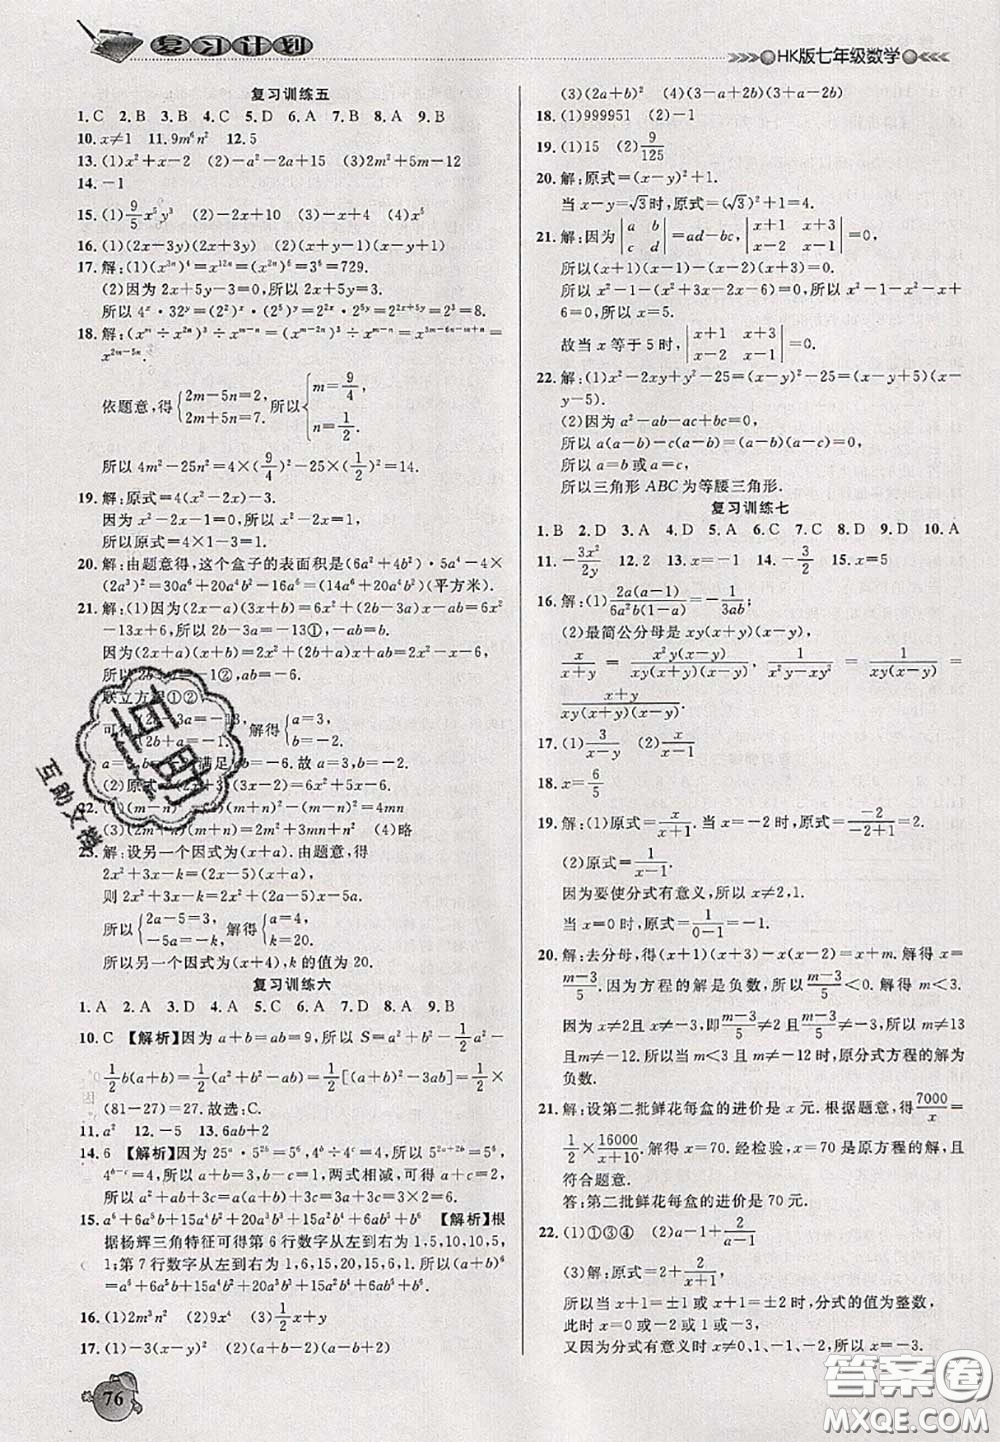 复习计划
HK版七年级数学
复习训练五
1. C 2. B 3. B 4. C 5. D 6. A 7. B 8. A 9. B
10. x≠1 11. 9m⁶n² 12. 5
13. (1)x²+x-2 (2)-a²-2a+15 (3)2m²+5m-12
14. -1
15. (1)9/5x⁵y³ (2)-2x+10 (3)-x+4 (4)x⁵
16. (1)(2x-3y)(2x+3y) (2)(x+y-1)(x-y+1)
17. 解:(1)(x³ⁿ)⁴=x¹²ⁿ=(x²ⁿ)⁶=3⁶=729.
(2)因为 2x+5y-3=0,所以 2x+5y=3.
所以 4ˣ·32ʸ=(2²)ˣ·(2⁵)ʸ=2²ˣ⁺⁵ʸ=2³=8.
18. 解:(xᵐ÷x²ⁿ)³÷xᵐ⁻ⁿ=(xᵐ⁻²ⁿ)³÷xᵐ⁻ⁿ=x³ᵐ⁻⁶ⁿ⁻ᵐ⁺ⁿ=
x²ᵐ⁻⁵ⁿ.
依题意,得{2m-5n=2, 2m+5n=7. 所以{m=9/4, n=1/2.
所以 4m²-25n²=4×(9/4)²-25×(1/2)²=14.
19. 解:原式=4(x²-2x)-3.
因为 x²-2x-1=0,所以 x²-2x=1.
所以原式=4×1-3=1.
20. 解:由题意得,这个盒子的表面积是(6a²+4b²)·5a⁴-4×
(2a³)²=30a⁶+20a⁴b²-16a⁶=(14a⁶+20a⁴b²)(平方米).
21. 解:(1)因为(2x-a)(3x+b)=6x²+(2b-3a)x-ab=6x²
-13x+6,所以 2b-3a=-13①,-ab=6.
因为(2x+a)(x+b)=2x²+(a+2b)x+ab=2x²-x-6,
所以 2b+a=-1②,ab=-6.
联立方程①②,
可得{2b-3a=-13, 2b+a=-1. 解得{a=3, b=-2.
a=3,b=-2 满足 ab=-6.故 a=3,b=-2.
(2)原式=(2x-3)(3x-2)=6x²-13x+6.
22. (1)(m-n)² (2)(m+n)²-(m-n)²=4mn
(3)(2m+n)(m+n)=2m²+3mn+n² (4)略
23. 解:设另一个因式为(x+a).由题意,得
2x²+3x-k=(2x-5)(x+a),
则 2x²+3x-k=2x²+(2a-5)x-5a.
所以{2a-5=3, -5a=-k, 解得{a=4, k=20.
所以另一个因式为(x+4),k的值为 20.
复习训练六
1. A 2. A 3. D 4. D 5. A 6. D 7. A 8. A 9. B
10. C 【解析】因为 a+b=ab=9,所以 S=a²+b²-1/2a²-
1/2b(a+b)=1/2(a²+b²-ab)=1/2[(a+b)²-3ab]=1/2×
(81-27)=27.故选:C.
11. a² 12. -5 13. 6ab+2
14. 6 【解析】因为 25ᵃ·5²ᵇ=5⁶,4ᵇ÷4ᶜ=4,所以 5²⁽ᵃ⁺ᵇ⁾=5⁶,
4ᵇ⁻ᶜ=4,所以 a+b=3,b-c=1,两式相减,可得 a+c=2,
所以 a²+ab+3c=a(a+b)+3c=3a+3c=3×2=6.
15. a⁶+6a⁵b+15a⁴b²+20a³b³+15a²b⁴+6ab⁵+b⁶ 【解析】根
据杨辉三角特征可得第 6 行数字从左到右为 1,5,10,10,5,
1;第 7 行数字从左到右为 1,6,15,20,15,6,1,所以(a+b)⁶
=a⁶+6a⁵b+15a⁴b²+20a³b³+15a²b⁴+6ab⁵+b⁶.
16. (1)2m³n² (2)9x⁴ (3)1/2x+y
17. (1)-3(x-y)² (2)(a+b)(a-b+2)
(3)(2a+b)² (4)(3-a+2b)(3+a-2b)
18. (1)999951 (2)-1
19. (1)15 (2)9/125
20. 解:原式=(x-y)²+1.
当 x-y=√3时,原式=(√3)²+1=4.
21. 解:因为|a b; c d|=ad-bc,|x+1 x+3; x-2 x-1|=0,
所以(x+1)(x-1)-(x-2)(x+3)=0,
所以 x²-1-(x²+3x-2x-6)=0,所以 x²-1-x²-x+
6=0,所以 x=5.
故当 x 等于 5 时,|x+1 x+3; x-2 x-1|=0.
22. 解:(1)x²-2xy+y²-25=(x-y)²-25=(x-y+5)(x
-y-5).
(2)因为 a²-ab-ac+bc=0,
所以 a(a-b)-c(a-b)=0,所以(a-b)(a-c)=0,
所以 a=b或a=c,
所以三角形 ABC 为等腰三角形.
复习训练七
1. B 2. D 3. A 4. D 5. A 6. C 7. C 8. D 9. D 10. A
11. -3x²/2y 12. 2 13. x=-4 14. -3/2 15. x=5
16. 解:(1)2a(a-1)/6a²b(1-a)=-1/3ab;
(2)最简公分母是 xy(x+y)(x-y);
x/(x+y)=x²y(x-y)/xy(x+y)(x-y),1/(x²y-xy²)=1/xy(x-y)=
(x+y)/xy(x+y)(x-y).
17. (1)3/(x-y) (2)x/(x-1)
18. x=6/5
19. 解:(1)原式=x/(x+1).当 x=-2时,原式=-2/(-2+1)=2.
(2)原式=1/(x-1).
因为要使分式有意义,所以 x≠2,1.
当 x=0 时,原式=1/(0-1)=-1.
20. 解:去分母,得(x+1)(x+3)-x(x-2)=x+m.解得 x=
(m-3)/5.因为方程的解是负数,所以(m-3)/5<0.解得 m<3.
因为 x≠2,x≠-3,即(m-3)/5≠2,(m-3)/5≠-3,所以 m≠13
且 m≠-12.所以当 m<3 且 m≠-12 时,原分式方程的解为
负数.
21. 解:设第二批鲜花每盒的进价是 x 元.根据题意,得7000/x=
1/2×16000/(x+10).解得 x=70.经检验,x=70 是原方程的解,且
符合题意.
答:第二批鲜花每盒的进价是 70 元.
22. (1)①③④ (2)a-1+2/(a-1)
(3)解:原式=2+2/(x+1),
所以当 x+1=±1或x+1=±2时,分式的值为整数,
此时 x=0或-2或1或-3.
又因为分式有意义时 x≠0、1、-1、-2,所以 x=-3.
76
互助
互助文档
答案圈
MXQE.COM